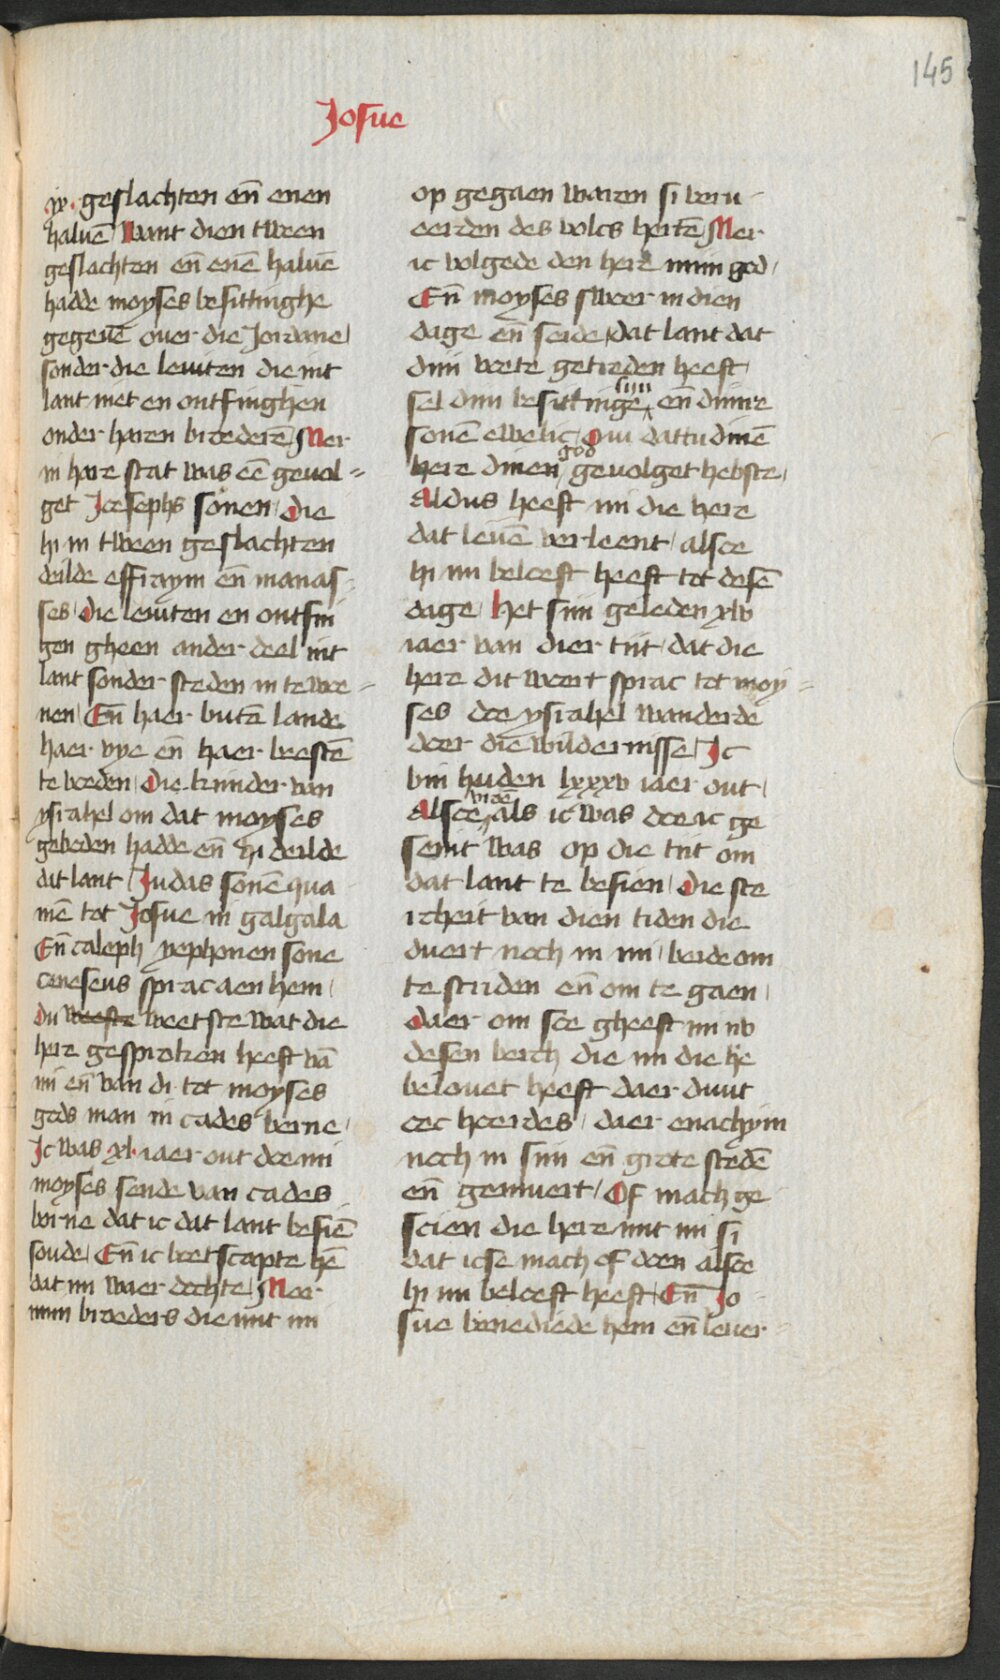 145
Josue
ix. geslachten en̄ enen
haluē Want dien tween
geslachten en̄ enē haluē
hadde moyses besittinghe
gegeuē ouer die Jordane
sonder die leuiten die nit
lant met en ontfinghen
onder haren broederē Mer
in hare stat was eē geuol=
get Josephs sonen Die
hi in tween geslachten
deilde effraym en̄ manas-
ses Die leuiten en ontfin
gen gheen ander deel int
lant sonder steden in te woe=
nen En̄ haer butē lande
haer vye en̄ haer beestē
te voeden Die kinder van
ysrahel om dat moyses
geboden hadde en̄ hi deilde
dat lant Judas sonē qua
mē tot Josue in galgala
En̄ caleph yephonen sone
ceneseus sprac aen hem
Du weeste weetste wat die
here gesproken heeft vā
mi en̄ van di tot moyses
gods man in cades berne
Ic was xl. iaer out doe mi
moyses sende van cades
berne dat ic dat lant besiē
soude En̄ ic boetscapte hē
dat mi waer dochte Meer
mijn broeders die mit mi
op gegaen waren si veru-
eerden des volcs hertē Mer
ic volgede den here mijn god
En̄ moyses swoer in dien
dage en̄ seide dat lant dat
dijn voete getreden heeft
sel dijn besittinge sijn en̄ dijnre
sonē ewelic Om dattu dinē
here dinen god geuolget hebste
Aldus heeft mi die here
dat leuē verleent alsoe
hi mi beloeft heeft tot desē
dage Het sijn geleden xlv
iaer van dier tijt dat die
here dit woert sprac tot moy=
ses doe ysrahel wanderde
doer die wildernisse Ic
bin huden lxxxv iaer out
Alsoe vroē als ic was doe ic ge
seint was op die tijt om
dat lant te besien Die ste
rcheit van dien tiden die
duert noch in mi beide om
te striden en̄ om te gaen
Daer om soe gheeft mi nv
desen berch die mi die he
belouet heeft daer duut
oec hoerdes daer enachym
noch in sijn en̄ grote stedē
en̄ gemuert Of mach ge
scien die here mit mi si
dat icse mach of doen alsoe
hi mi beloeft heeft En̄ Jo-
sue benediede hem en̄ leuer=